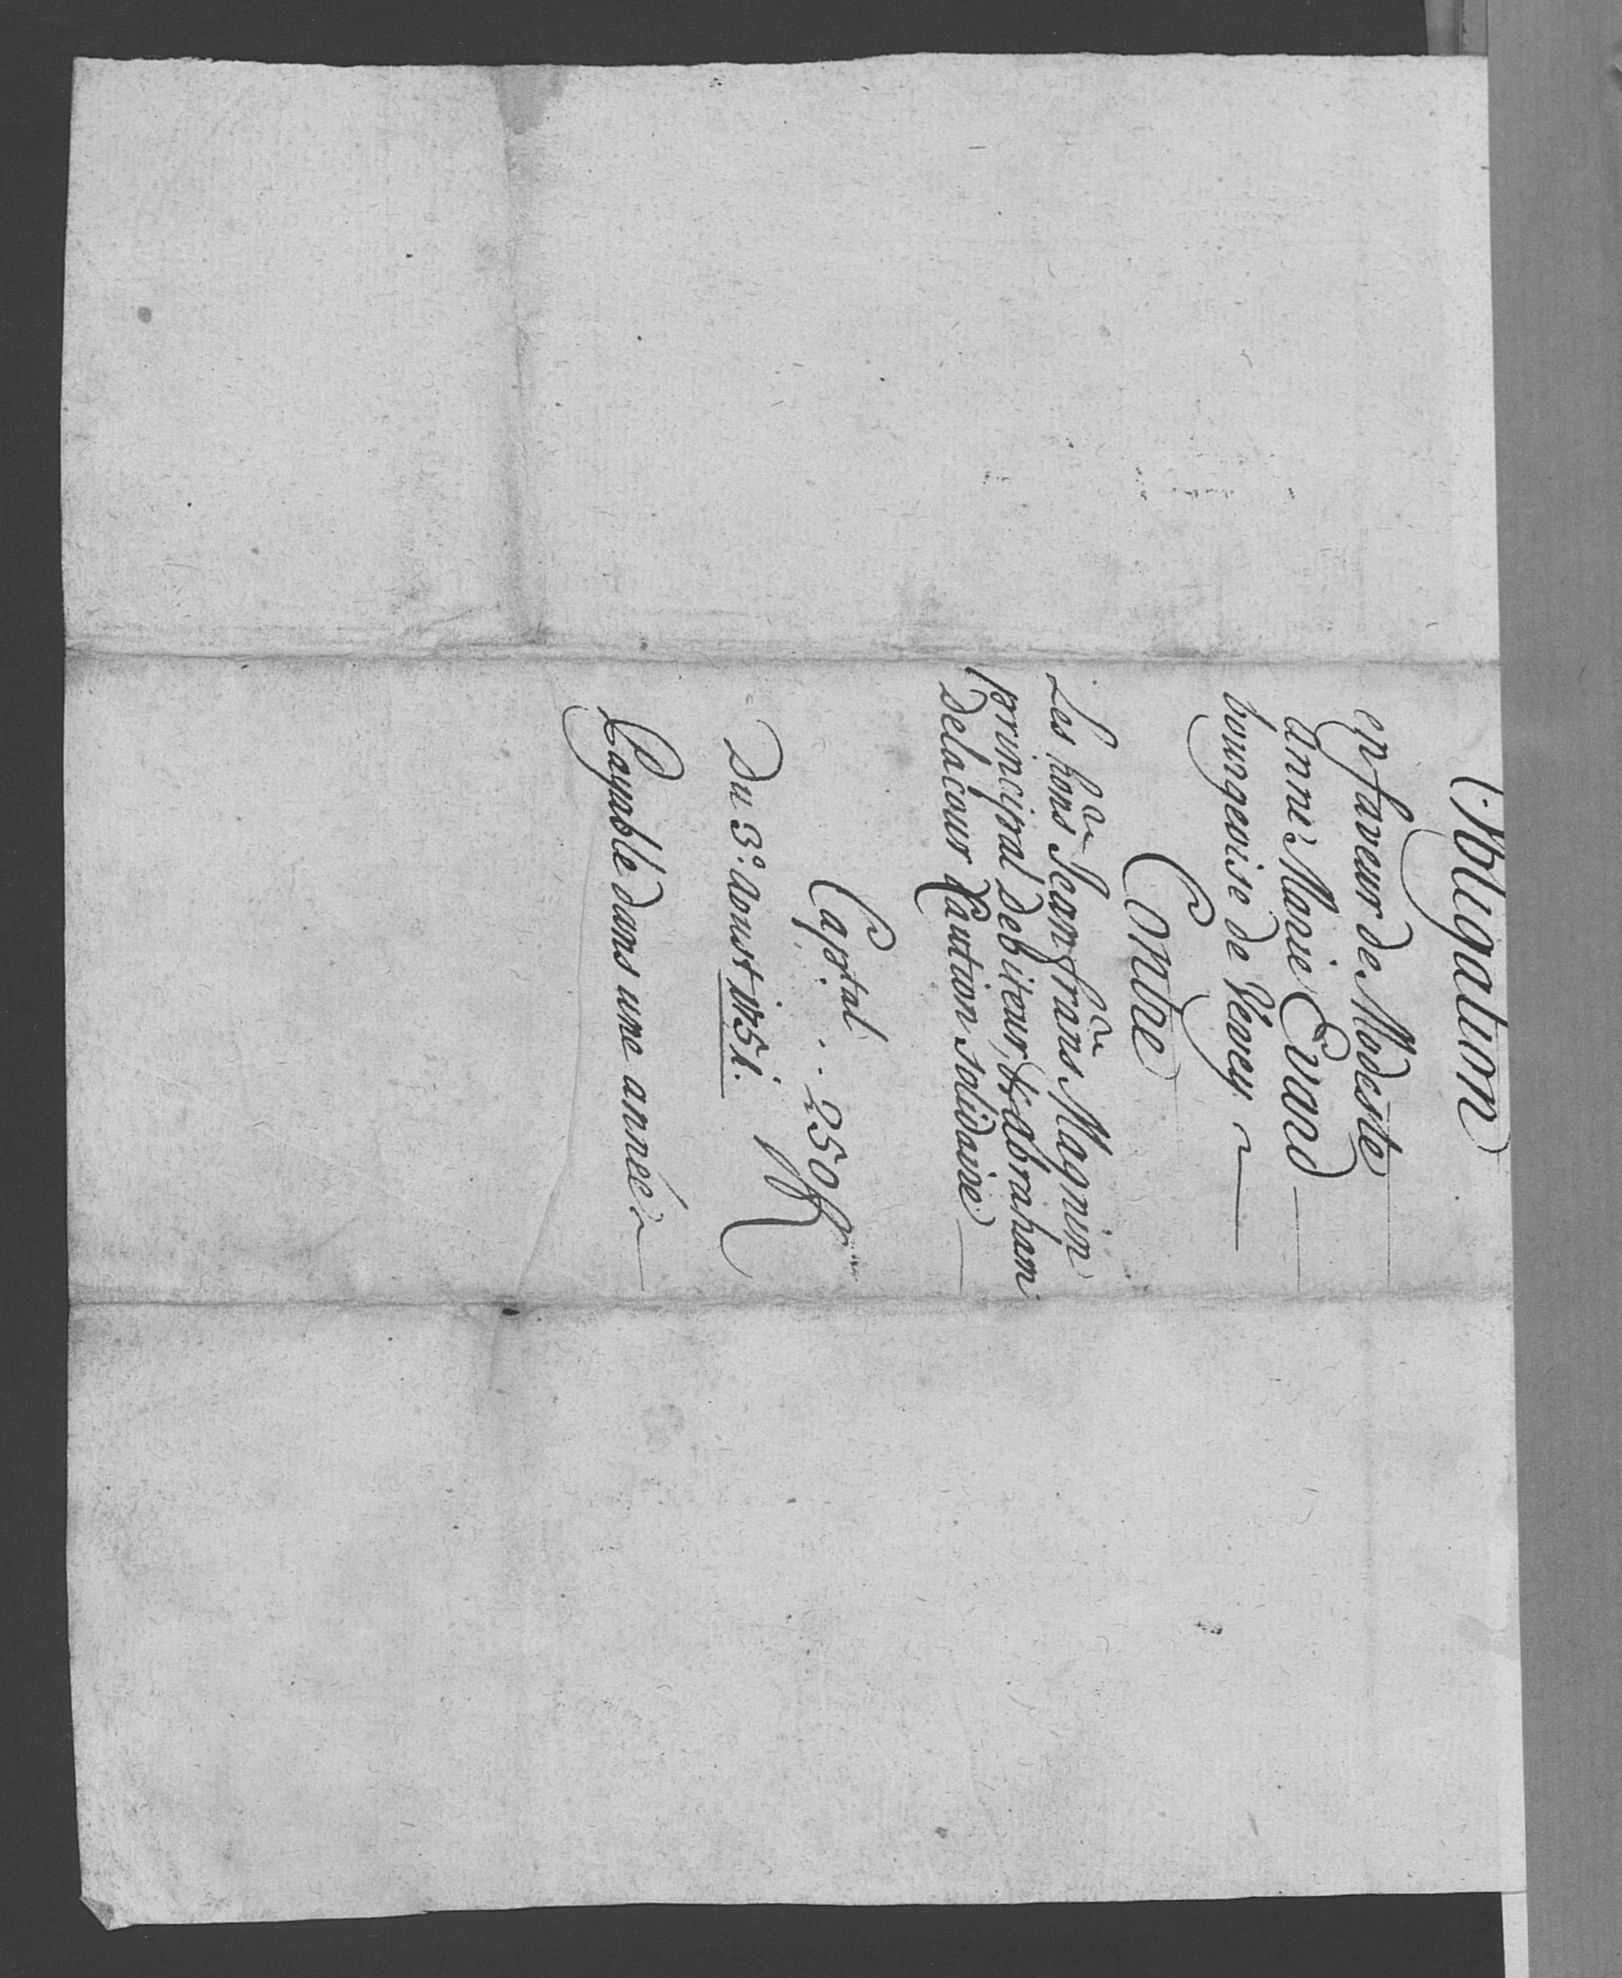 Obligation
en faveur de Modeste
Anne Marie Evard
bourgeoise de Vevey
Contre
Les hons Jean frans Magnin
principal debiteur, & Abraham
Delacour Caution solidaire
Captal .. 250 ff
Du 3e. Aoust 1751.
Payable dans une année